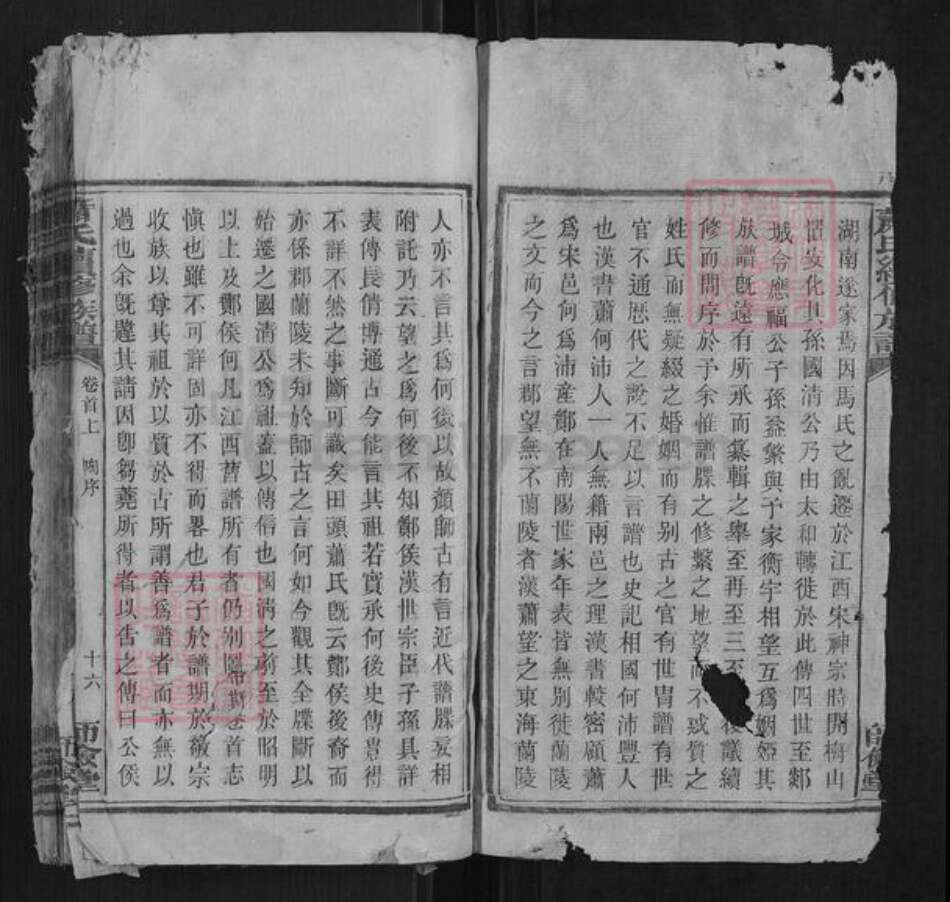 湖南遂家焉因馬氏之亂遷於江西宋神宗時開梅山
置安化其孫國清公乃由太和轉徙於此傳四世至鄰
城令應福公子孫益繁與予家衡宇相望互爲姻婭其
族譜既遠有所承而纂輯之舉至再至三至後議續
修而問序於予余惟譜牒之修繫之地望而不或質之
姓氏而無疑綴之婚姻而有別古之官有世胄譜有世
官不通歴代之說不足以言譜也史記相國何沛豐人
也漢書蕭何沛人一人無籍兩邑之理漢書較密顧蕭
爲宋邑何爲沛產酇在南陽世家年表皆無別徙蘭陵
之文而今之言郡望無不蘭陵者漢蕭望之東海蘭陵
人亦不言其爲何後以故顏師古有言近代譜牒妄相
附託乃云望之爲何後不知酇侯漢世宗臣子孫具詳
表傳長倩博通古今能言其祖若實承何後史傳豈得
不詳不然之事斷可識矣田頭蕭氏既云酇侯後裔而
亦係郡蘭陵未知於師古之言何如今觀其全牒斷以
始遷之國清公爲祖蓋以傳信也國清之前至於昭明
以上及酇侯何凡江西舊譜所有者仍別簡首志
慎也雖不可詳固亦不得而畧也君子於譜期於敬宗
收族以尊其祖於以質於古所謂善爲譜者而亦無以
過也余既韙其請因卽芻蕘所得者以告之傳曰公侯
蕭氏續修族譜
卷首上
陶序
十六
師儉堂
蕭氏續修族譜
師儉堂